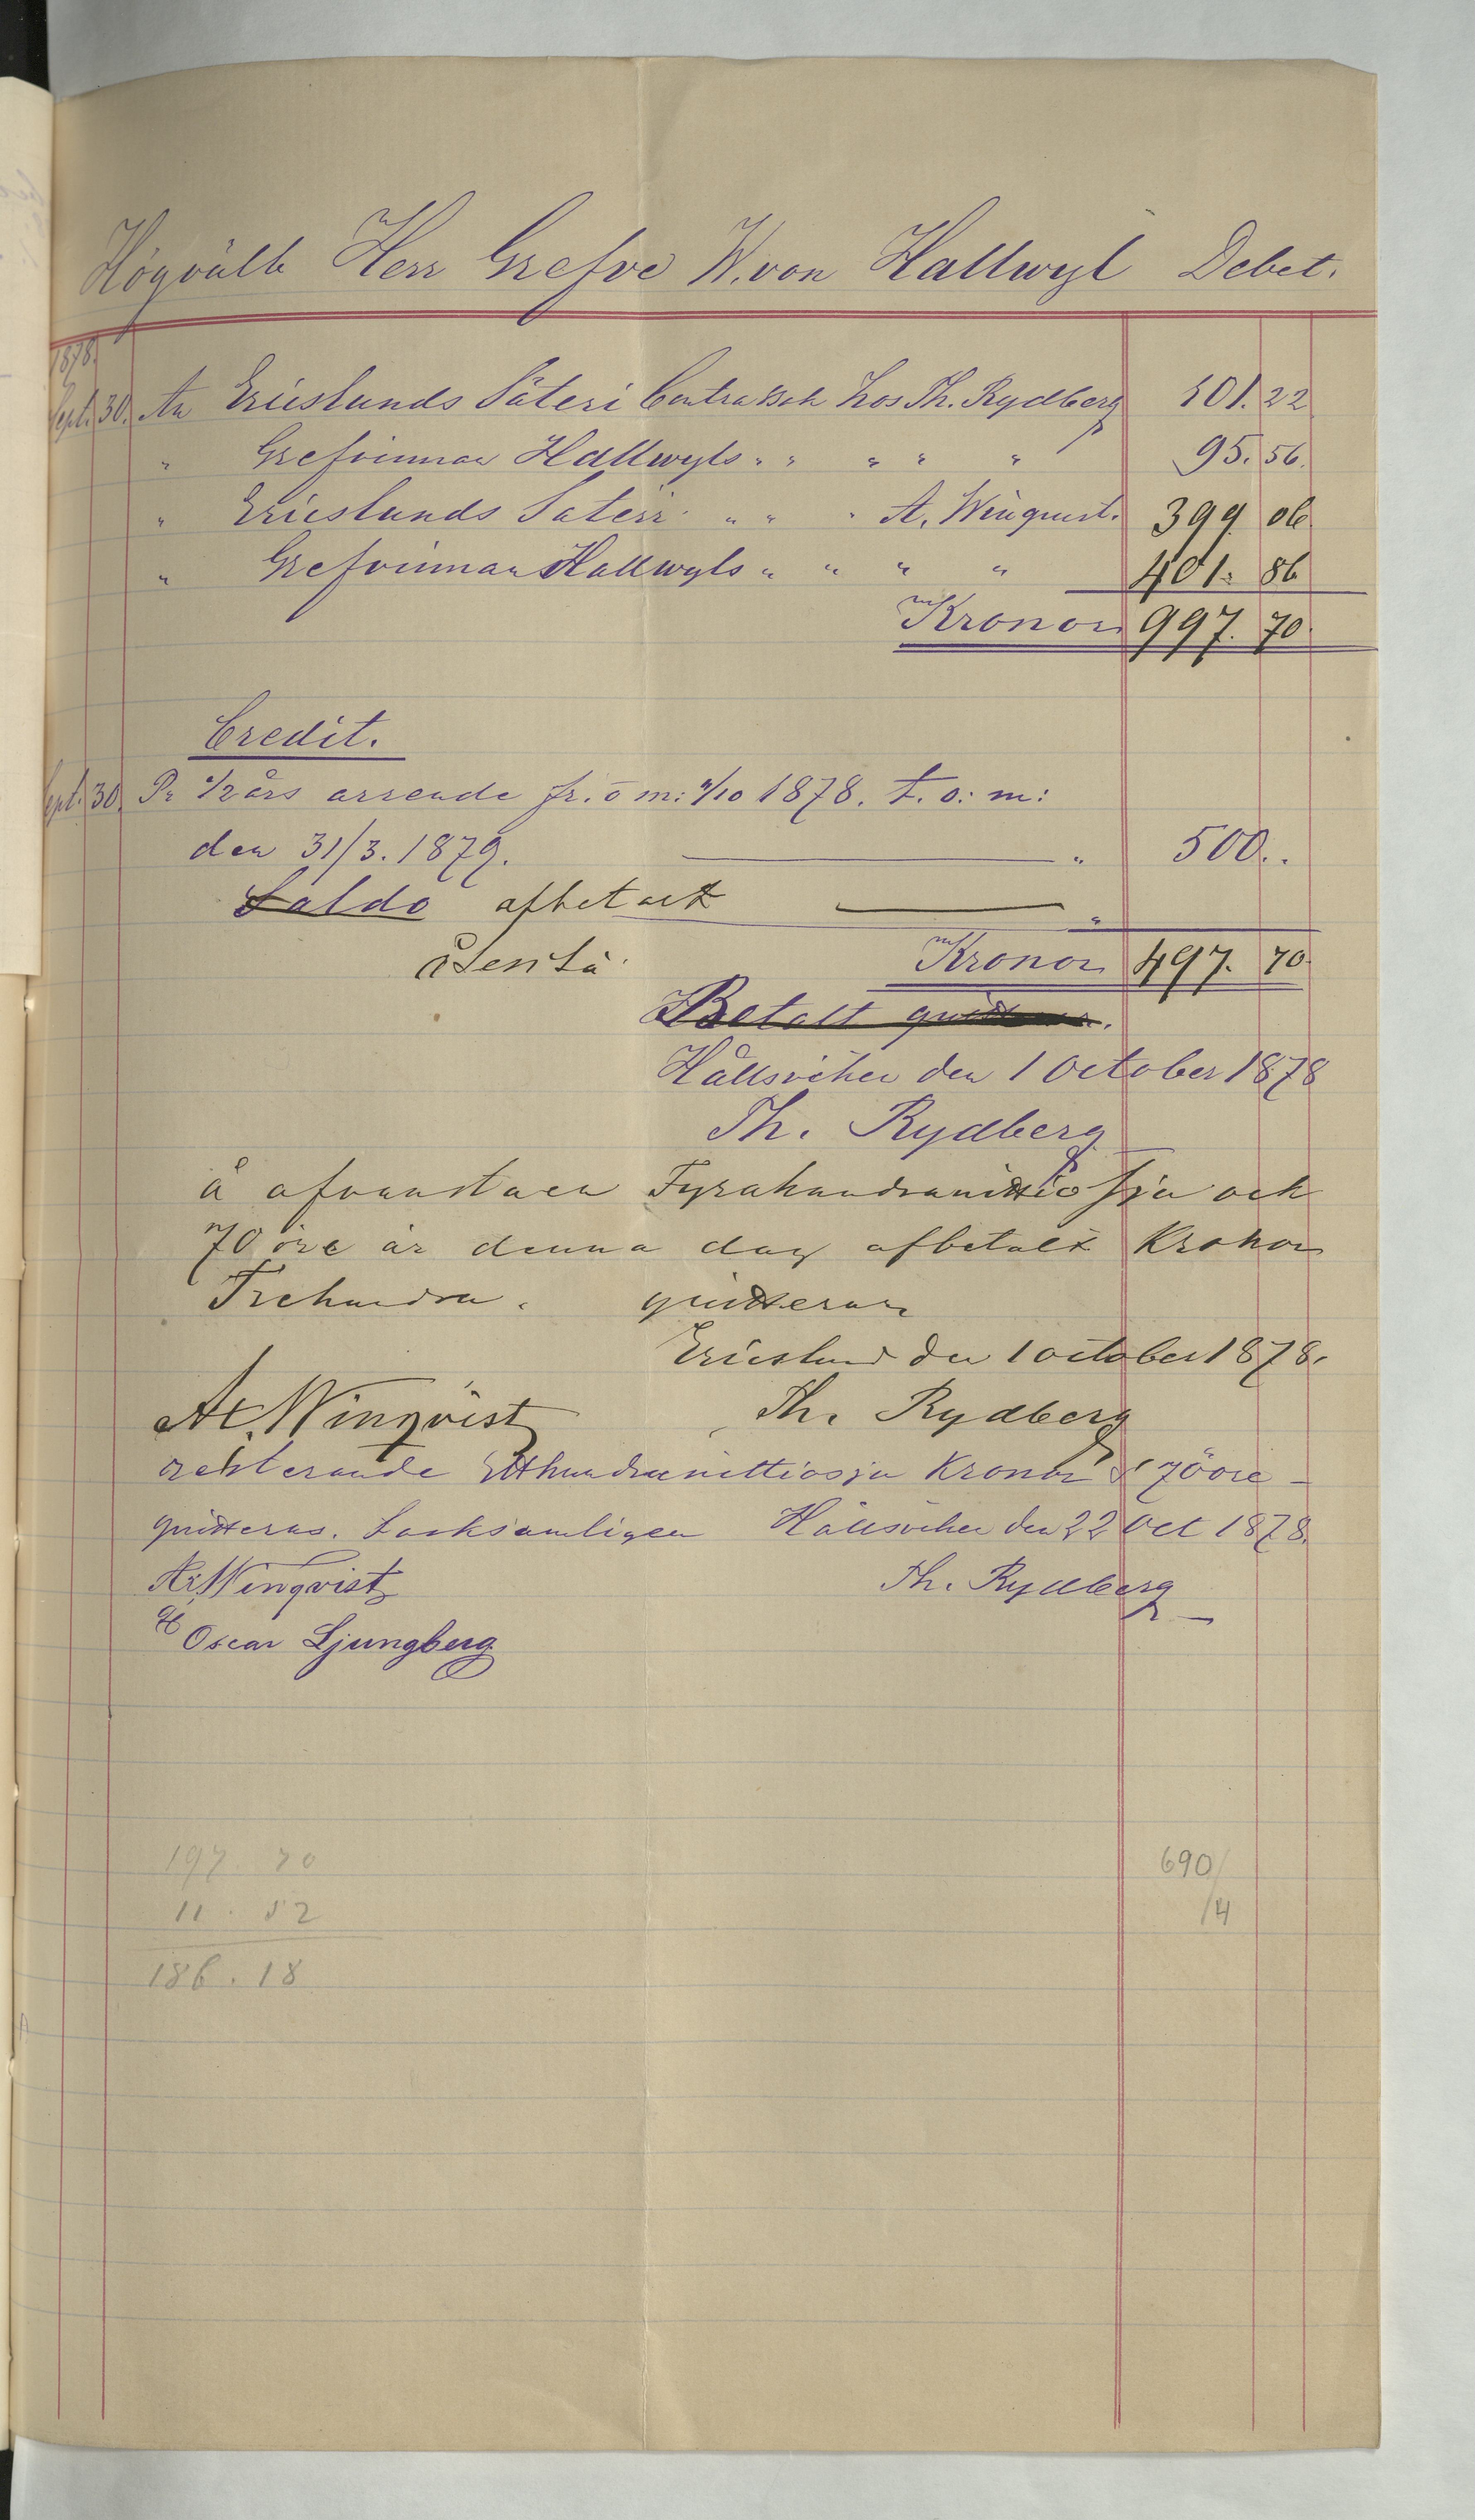 Högvälb Herr Grefve W. von Hallwyl Debet.
1878.
Sept. 30. An Ericslunds Säteri Contrabok hos Th. Rydberg 101. 22
" Grefvinnan Hallwyls " " " " " 95. 56.
" Ericslunds Säteri " " " A. Winquist. 399. 06
" Grefvinnan Hallwyls " " " " 401. 86
Kronor 997. 70.
Credit.
Sept. 30. Pr 1/2 års arrende fr. o m: 1/10 1878. t. o: m:
den 31/3. 1879. " 500..
Saldo afbetalt "
Kronor 497. 70.
Betalt qvitteras.
Hällsviken den 1 October 1878
Th. Rydberg
å ofvanstaen Fyrahundranittiosju och
70 öre är denna dag afbetalt Kronor
Trehundra. quitteras
Ericslund den 1 october 1878.
Ax. Winqvist Th. Rydberg
resterande Etthundranittiosju Kronor & 70 öre
quitteras. Tacksamligen Hällsviken den 22 Oct 1878.
Ax. Winqvist Th. Rydberg
Oscar Ljungberg
197. 70 690/
11. 52 /4
186. 18